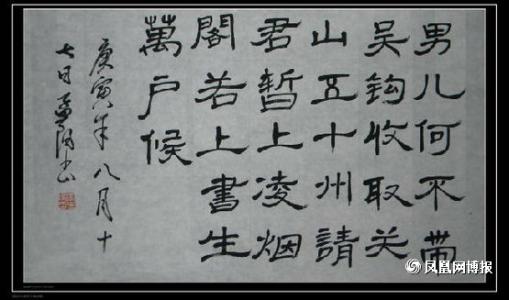 男儿何不帶
吴鈎收取关
山五十州請
君暫上凌烟
閣若上書生
萬户候
庚寅年八月十
七日孟
凤凰网博报